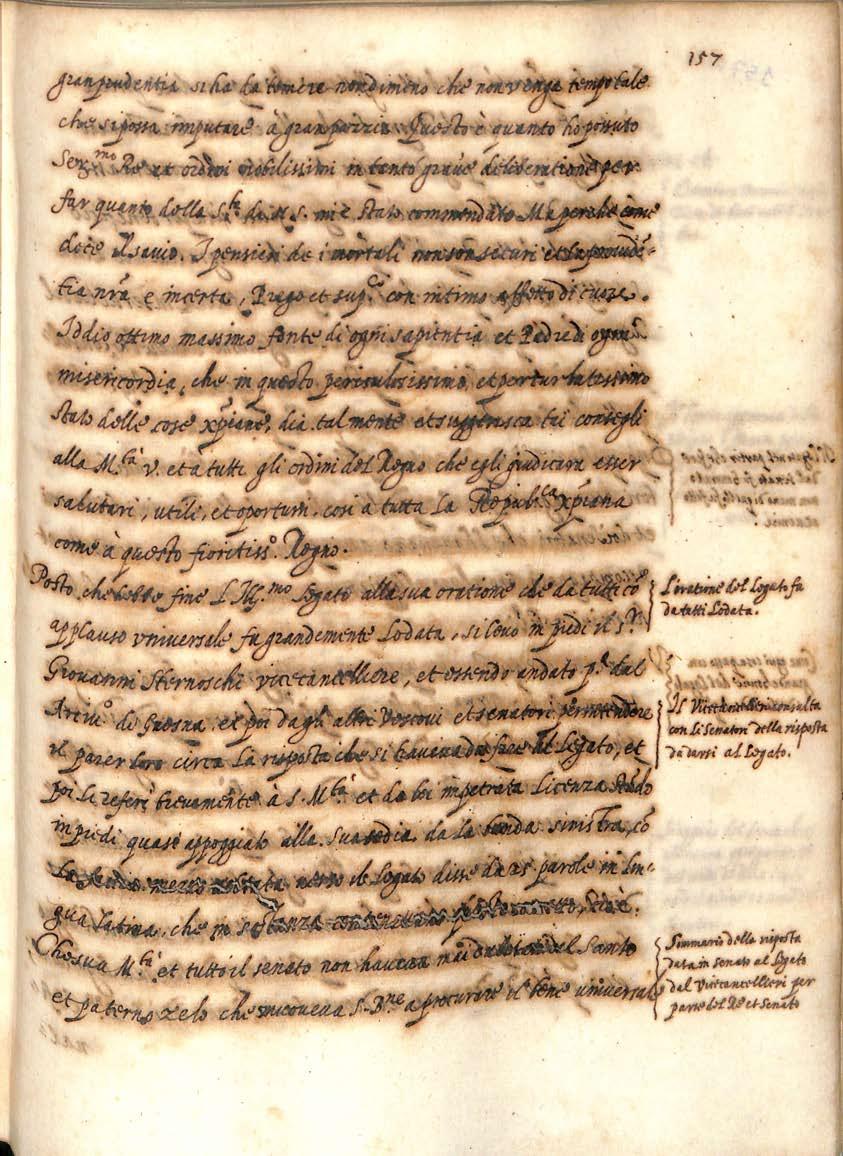 157
gran prudentia si ha da temere nondimeno che non venga tempo tale
che si possa imputare à gran pazzia. Questo è quanto ho possuto
Ser.mo Re et ordini nobilissimi in tanto grave deliberatione per
far quanto dalla S.tà di N. S. mi è stato commendato Ma perche come
dice il savio. I pensieri de i mortali non son securi et la providē-
tia nr̃a e incerta, Prego et sup.co con intimo affetto di cuore.
Iddio ottimo massimo fonte di ogni sapientia et Padre di ogni
misericordia, che in questo periculosissimo, et perturbatissimo
stato delle cose xp̃iane, dia tal mente et suggerisca tai consegli
alla M.tà v. et à tutti gli ordini del Regno che egli giudicara esser
salutari, utili, et oportuni, cosi à tutta la Republ.ca xp̃iana
come à questo fioritiss.o Regno.
Posto che hebbe fine l'Ill.mo legato alla sua oratione che da tutti cō
applauso universale fu grandemente lodata, si levò in piedi il s.r
Giovanni Sternoschi vicecancelliere, et essendo andato p.a dal
Arciv.o di Gnesna, et poi dagli altri Vescovi et senatori per intendere
il parer loro circa la risposta che si haveva da fare al Legato, et
poi li referì brevamente à S. M.tà et da lei impetrata licenza stādo
in piedi quasi appoggiato alla sua sedia da la banda sinistra, cō
la verso il legato disse da 25 parole in lin-
gua latina, che in sostanza
Che sua M.tà et tutto il senato non havean mai dubitato del Santo
et paterno zelo che moveva S. B.ne a procurare il bene universale
L'oratione del Legato fu
da tutti Lodata.
Il Vicecancellieri consulta
con li Senatori della risposta
da darsi al Legato.
Summario della risposta
data in senato al Legato
dal Vicecancellieri per
parte del Re et Senato